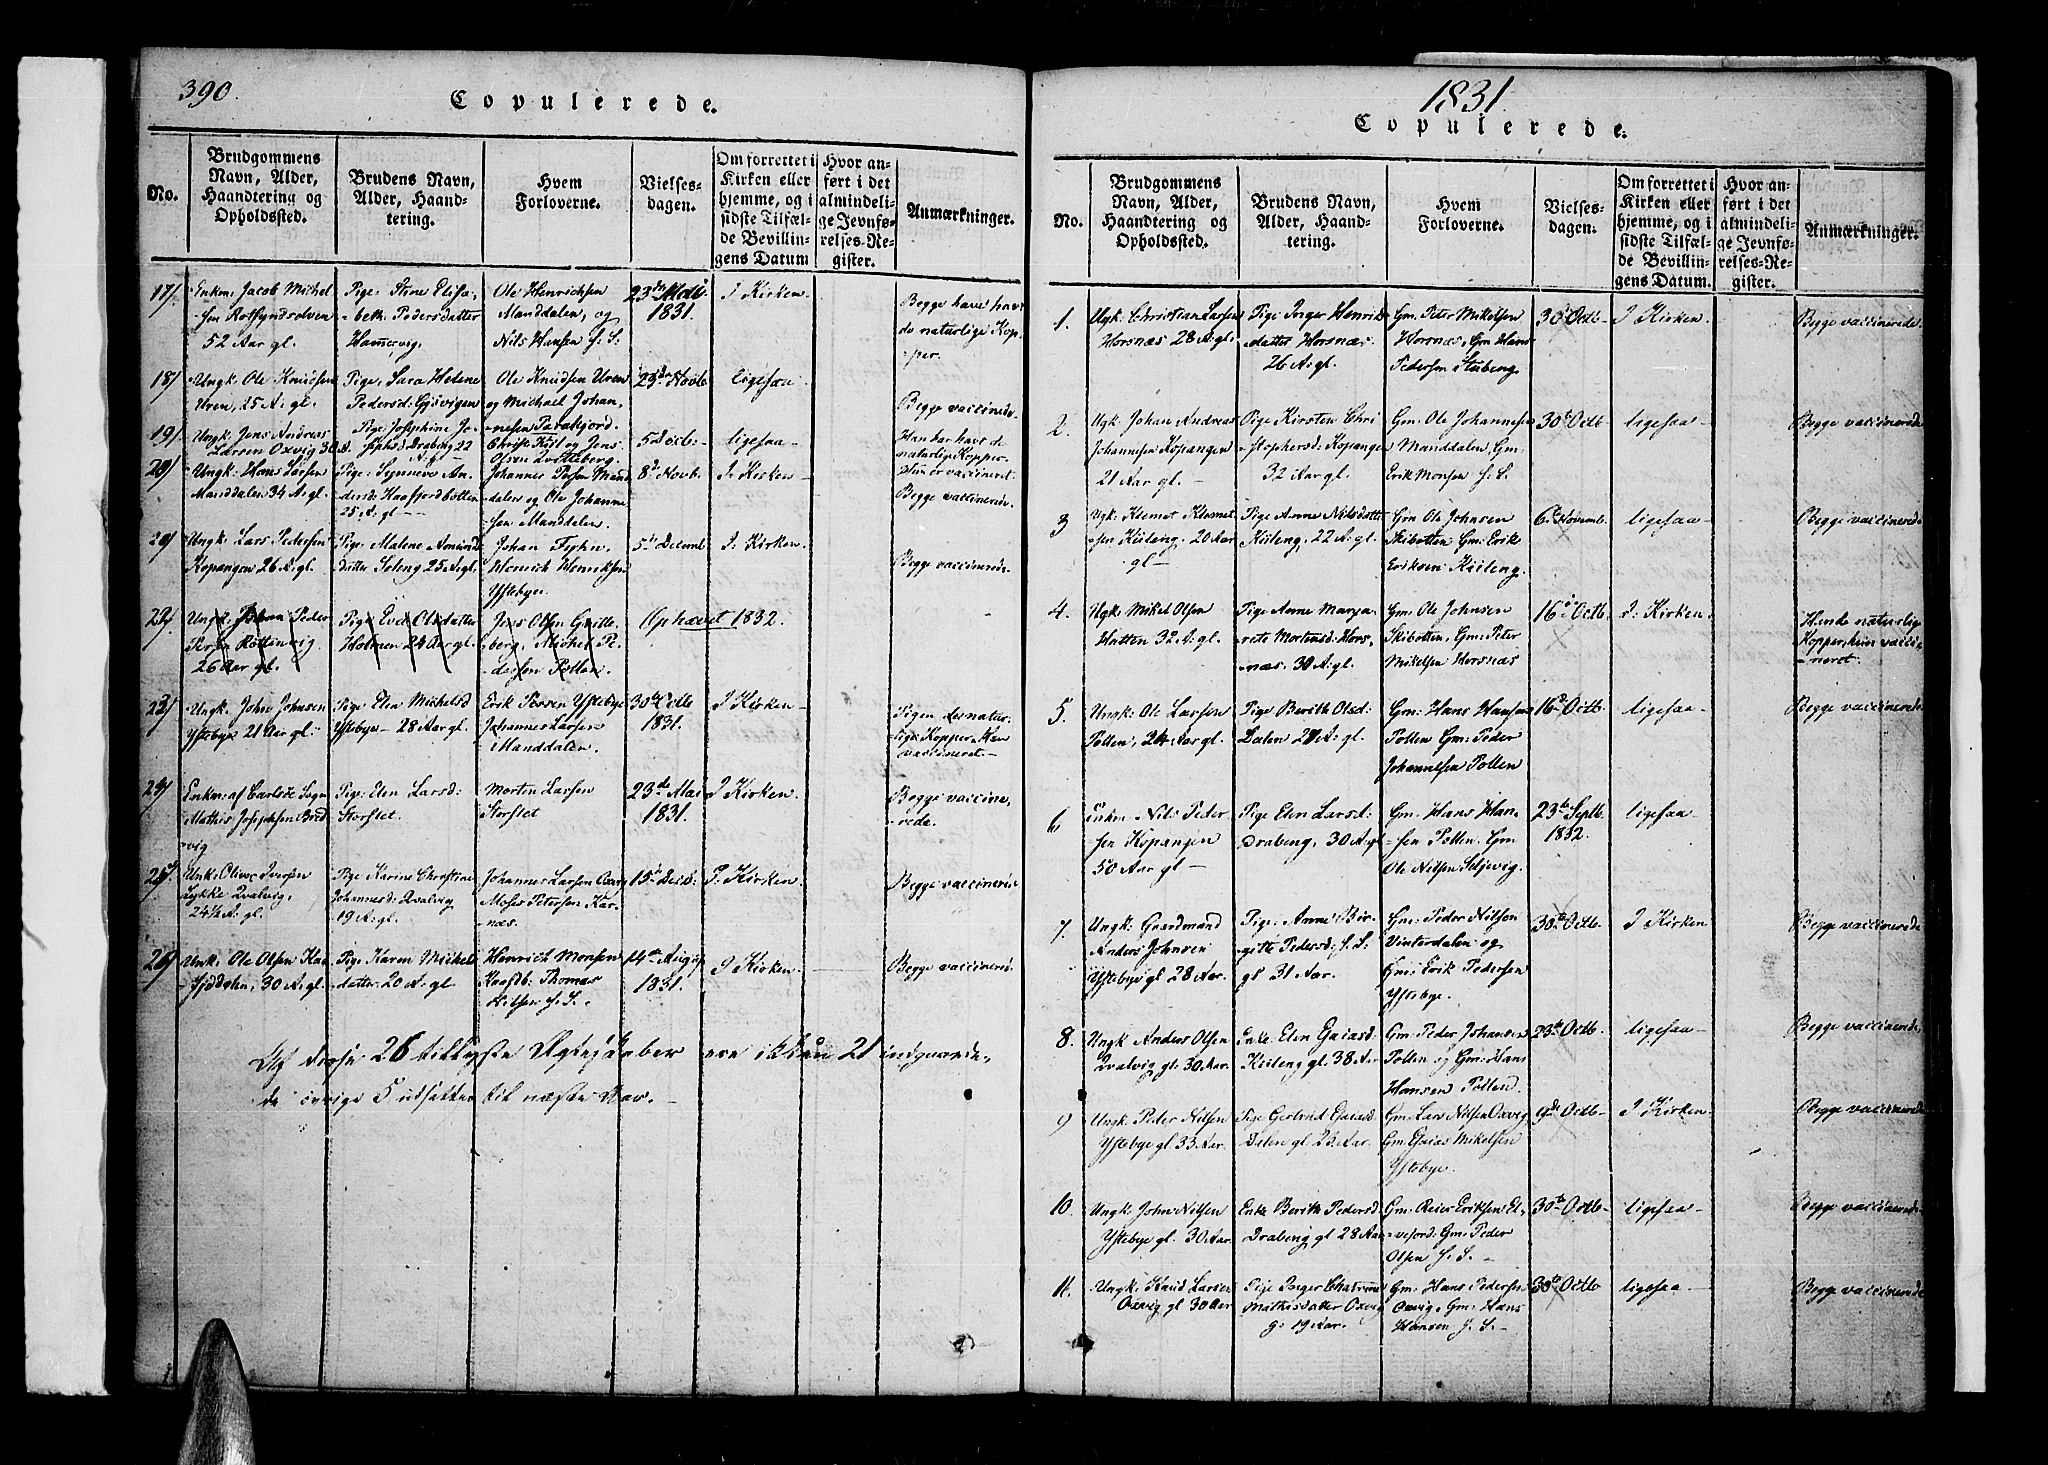 390.
Copulerede.
No.
Brudgommens
Navn, Alder,
Haandtering og
Opholdssted.
Brudens Navn,
Alder, Haand-
tering.
Hvem
Forloverne.
Vielses-
dagen.
Om forrettet i
Kirken eller
hjemme, og i
sidste Tilfæl-
de Bevillin-
gens Datum
Hvor an-
ført i det
almindeli-
ge Jevnfø-
relses-Re-
gister.
Anmærkninger.
17/
Enkm: Jacob Michel
sen
52 Aar gl.
Pige: Stine Elisa-
beth Pedersdatter
Ole Henrichsen
Manddalen, og
Nils Hansen f. S.
23de
1831.
I Kirken
Begge have hav
de naturlige Kop-
per.
18/
Ungk: Ole Knudsen
Uren, 25 A: gl.
Pige, Sara Helene
Pedersd:
Ole Knudsen Uren
og Michael Johan,
nesen
23de Novb
ligesaa
Begge vaccinede
19/
Ungk: Jens Andreas
Larsen Oxvig 30 A.
Pige Josephine Jo-
sephsd: Draberg 22
A: gl
og Jens
Olsen
5 Decb:
ligesaa
Han har havt de
naturlige Kopper
Hun er vaccineret.
20/
Ungk: Hans Larsen
Manddalen 34 A: gl.
Pige: Synneve An-
dersd: Kaafjordbotten
25 A: gl
Johannes Persen Mand
dalen og Ole Johanne
sen Manddalen.
8de Novb.
I Kirken
Begge vaccinerede
Ungk: Lars Pedersen
Kopangen 26 A: gl.
Pige: Malene Amund
datter Soleng 25 A: gl.
Johan Fyhn
Henrich Henriksen
Ystebye.
5te Decemb
I Kirken
Begge vaccinerede
22/
Ungk: Johan Peder
26 Aar gl.
Pige Olsdatter
Holmen 24 Aar gl.
Jens Olsen
berg, Michel Pe-
dersen Pollen.
Ophævet 1832.
Ungk: John Johnsen
Ystebye 21 Aar gl.
Pige Elen Michelsd
Ystebye 28 Aar gl.
Erik Persen Ystebye
Johannes Larsen
Manddalen.
30te Octb
1831.
I Kirken
Pigen de natur-
lige Kopper Han
vaccineret.
24/
Enkm: af Carlsøe Sogn
Mathis Josephsen Bred
vig
Pige: Elen Larsd:
Storslet.
Morten Larsen
Storslet
23de Mai
1831.
I Kirken
Begge vaccine,
rede.
25/
Unk: Oliver Iversen
Lykke Qvalvig,
24½ A: gl.
Pige Karine Christine
Johannesd: Qvalvig
19 A: gl.
Johannes Larsen Oxvig
Moses Petersen Kar-
næs.
15de Decb:
I Kirken
Begge vaccinerede
26/
Unk: Ole Olsen Kaa
fjddalen, 30 A: gl.
Pige: Karen Michels
datter 20 A: gl.
Henrich Monsen
Kaafdb: Thomas
Nilsen f. S.
14de Augus
1831.
I Kirken
Begge vaccinerede
Af disse 26 tillyste Ægtepaaber ere ikkun 21 indgaaede,
de øvrige 5 udsatte til næste Aar.
1831.
Copulerede.
No.
Brudgommens
Navn, Alder,
Haandtering og
Opholdssted.
Brudens Navn,
Alder, Haand-
tering.
Hvem
Forloverne.
Vielses-
dagen.
Om forrettet i
Kirken eller
hjemme, og i
sidste Tilfæl-
de Bevillin-
gens Datum.
Hvor an-
ført i det
almindeli-
ge Jevnfø-
relses-Re-
gister.
Anmærkninger.
1.
Ugk: Christian Larsen
Horsnæs 28 A: gl.
Pige Inger Henrik
datter Horsnæs.
26 A: gl.
Gm: Peter Mikelsen
Horsnæs, Gm Hans
Pedersen Stubeng.
30 Octb
I Kirken
Begge vaccinerede
2.
Ugk: Johan Andreas
Johannesen Kopangen
21 Aar gl.
Pige Kirsten Chri
stophersd: Kopangen
32 Aar gl.
Gm: Ole Johannesen
Manddalen Gm:
Erik Monsen f. S.
30te Octb
ligesaa
Begge vaccinerede
3
Ugk: Klemet Klemet
sen Kiileng. 20 Aar
gl
Pige Anne Nilsdatte
Kiileng, 22 A: gl.
Gm Ole Johnsen
Skibotten Gm: Erik
Eriksen Kiileng.
6te Novemb.
ligesaa
Begge vaccinerede
4.
Ugk: Mikel Olsen
Hatten 32 A: gl.
Pige Anne Marga-
rete Mortensd: Hors,
næs. 30 A: gl.
Gm: Ole Johnsen
Skibotten, Gm: Peter
Mikelsen Horsnæs
16de Octb.
I Kirken.
Hande naturlige
Kopper, hun vacci-
neret.
5.
Ungk: Ole Larsen
Pollen, 24 Aar gl.
Pige Berith Olsd:
Dalen 21 A: gl.
Gm: Hans Hansen
Pollen Gm: Peder
Johannesen Pollen
16de Octb.
ligesaa
Begge vaccinerede
6
Enkm Nils Peder
sen Kopangen
50 Aar gl
Pige Elen Larsd:
Drabeng, 30 A: gl
Gm: Hans Han-
sen Pollen. Gm
Ole Nilsen Seljevig.
23de Septb.
1832.
ligesaa
7.
Ungk: Gaardmand
Anders Johnsen
Ystebye gl 28 Aar.
Pige: Anne Bir-
gitte Pedersd: f. S.
gl 31 Aar.
Gm: Peder Nilsen
Vinterdalen og
Gm: Erik Pedersen
Ystebye.
30te Octb.
I Kirken
Begge vaccinerede
8.
Ungk Anders Olsen
Qvalvig gl: 30 Aar.
Enke Elen Esaiasd:
Kiileng gl: 38 Aar
Gm: Peder Johansen
Pollen og Gm: Hans
Hansen Pollen.
23de Octb.
ligesaa
Begge vaccinerede
9
Ungk: Peder Nilsen
Ystebye gl 33 Aar.
Pige Gertrud Esaiasd
Dalen gl. 23 Aar.
Gm: Lars Nilsen Oxvig
Gm: Esaias Mikelsen
Ystebye.
9de Octb
I Kirken
Begge vaccinerede
10.
Ungk: John Nilsen
Ystebye gl. 30 Aar.
Enke Berith Pedersd
Drabeng gl 28 Aar
Gm: Reier Eriksen El,
vefjord. Gm: Peder
Olsen f. S.
30te Octb
ligesaa
Begge vaccinerede
11.
Ungk: Knud Larsen
Oxvig gl 30 Aar
Pige Inger
Mathisdatter Oxvig
g: 19 Aar.
Gm: Hans Pedersen
Oxvig, Gm: Hans
Hansen f. S.
30te Octb
ligesaa
Begge vaccinerede